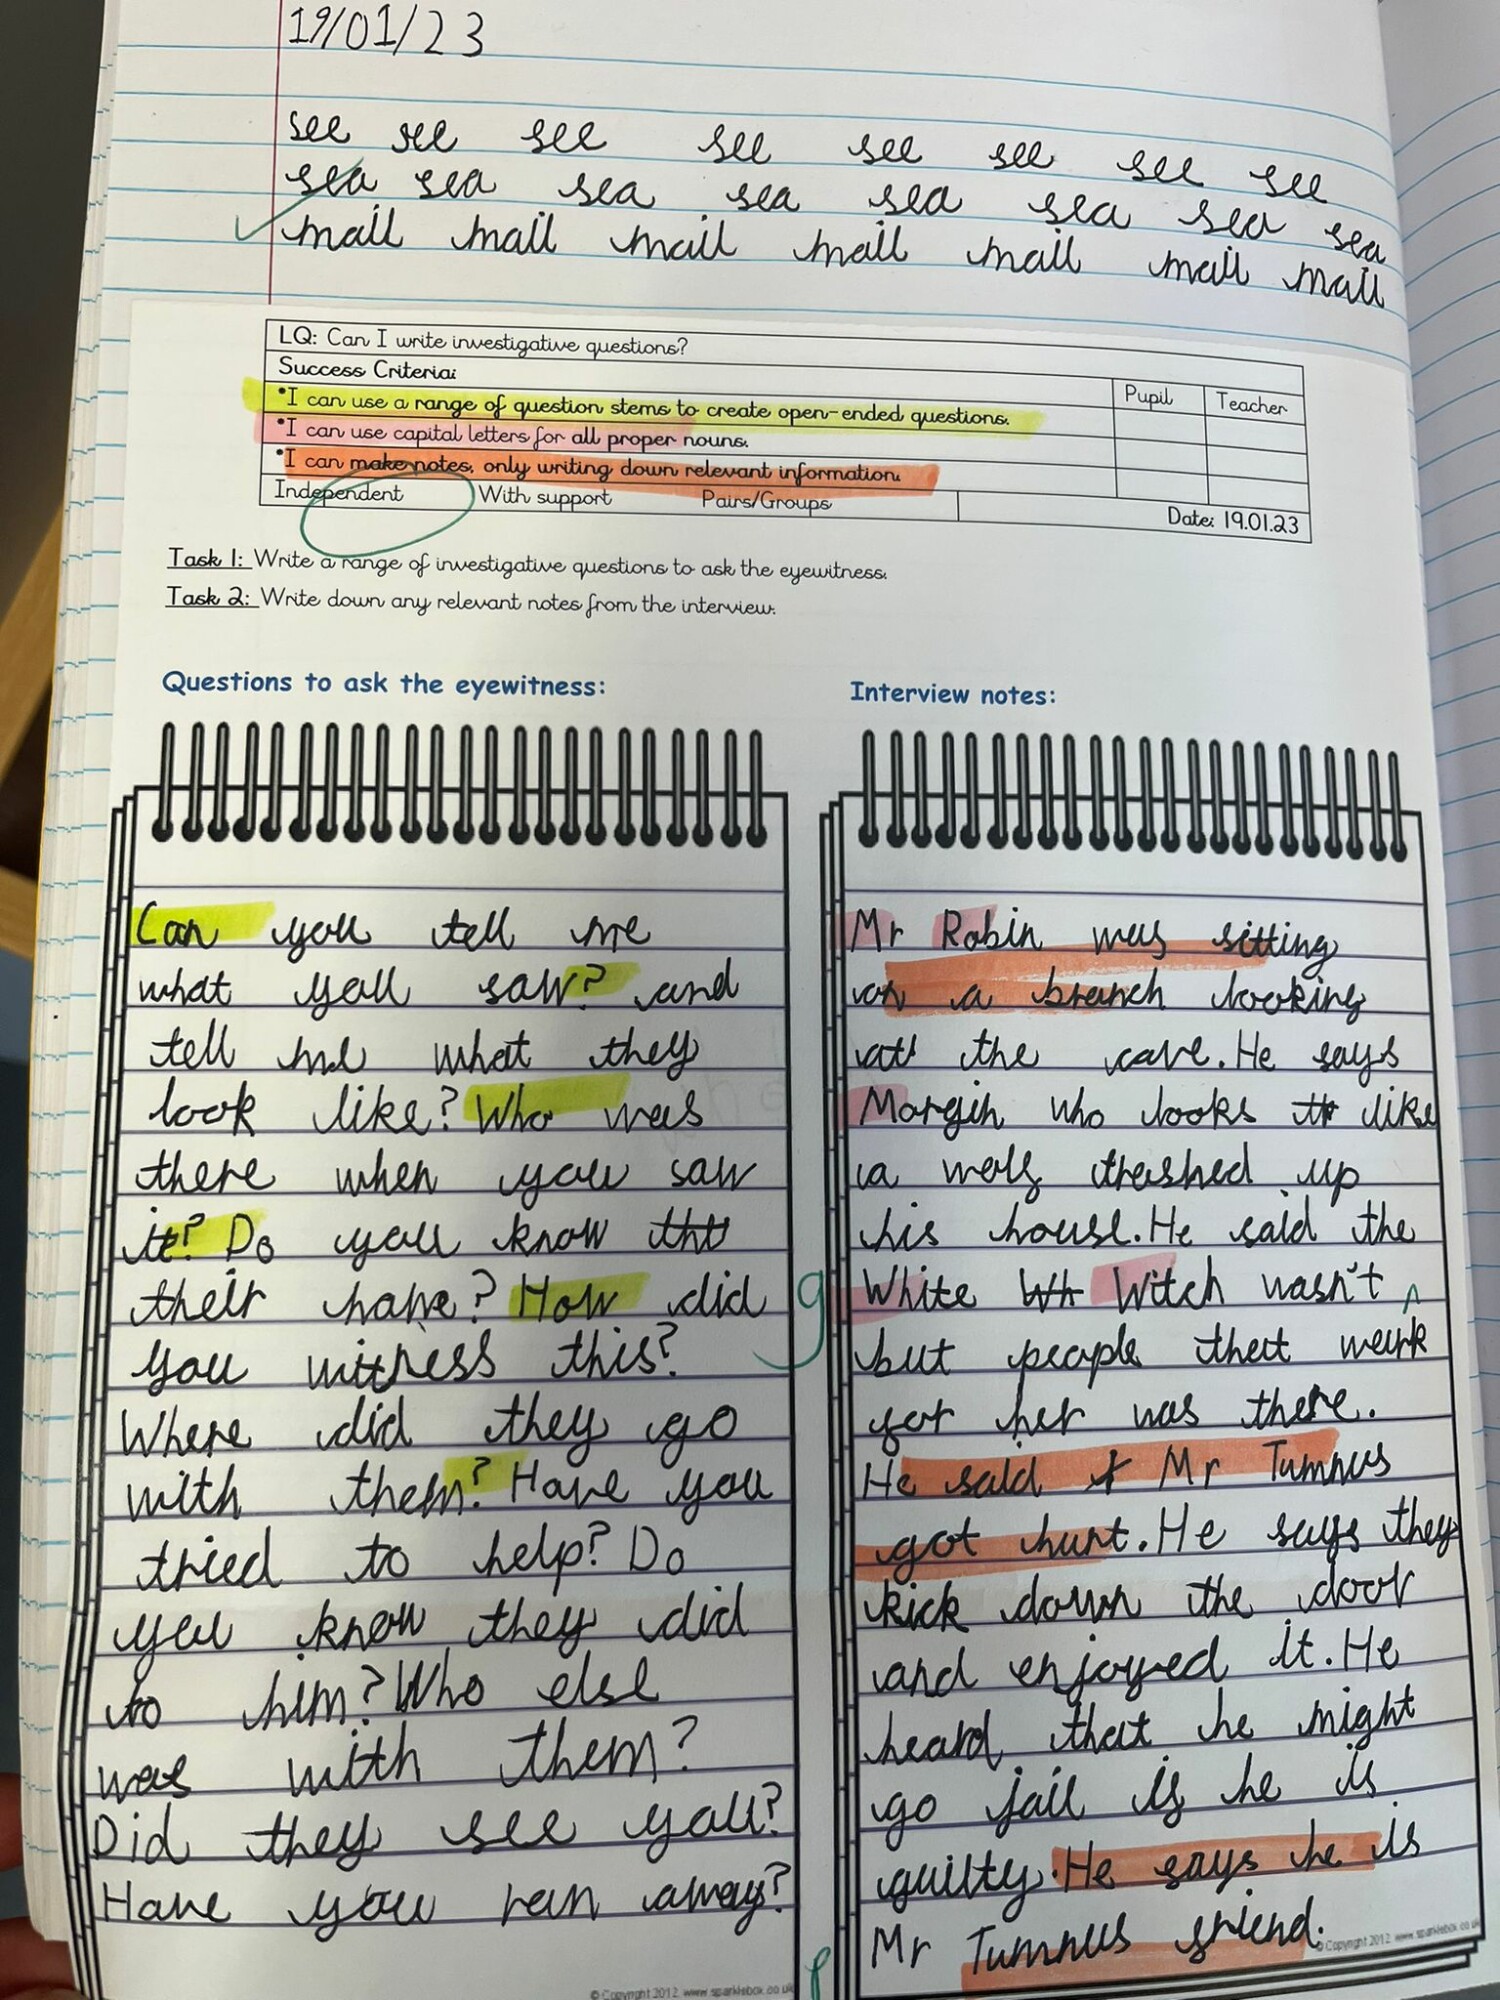 19/01/23
see see see see see see see see
sea sea sea sea sea sea sea sea
mail mail mail mail mail mail mail
LQ: Can I write investigative questions?
Success Criteria:
Pupil
Teacher
•I can use a range of question stems to create open-ended questions.
•I can use capital letters for all proper nouns.
•I can make notes, only writing down relevant information.
Independent With support Pairs/Groups
Date: 19.01.23
Task 1: Write a range of investigative questions to ask the eyewitness.
Task 2: Write down any relevant notes from the interview.
Questions to ask the eyewitness:
Can you tell me
what you saw? and
tell me what they
look like? Who was
there when you saw
it? Do you know tht
their name? How did
you witness this?
Where did they go
with them? Have you
tried to help? Do
you know they did
to him? Who else
was with them?
Did they see you?
Have you ran away?
© Copyright 2012. www.sparklebox.co.uk
Interview notes:
Mr Robin was sitting
on a branch looking
at the cave. He says
Morgin who looks like
a wolf trashed up
his house. He said the
g
White Wh Witch wasn't ^
but people that work
for her was there.
He said Mr Tumnus
got hurt. He says they
kick down the door
and enjoyed it. He
heard that he might
go jail if he is
guilty. He says he is
Mr Tumnus friend.
© Copyright 2012. www.sparklebox.co.uk